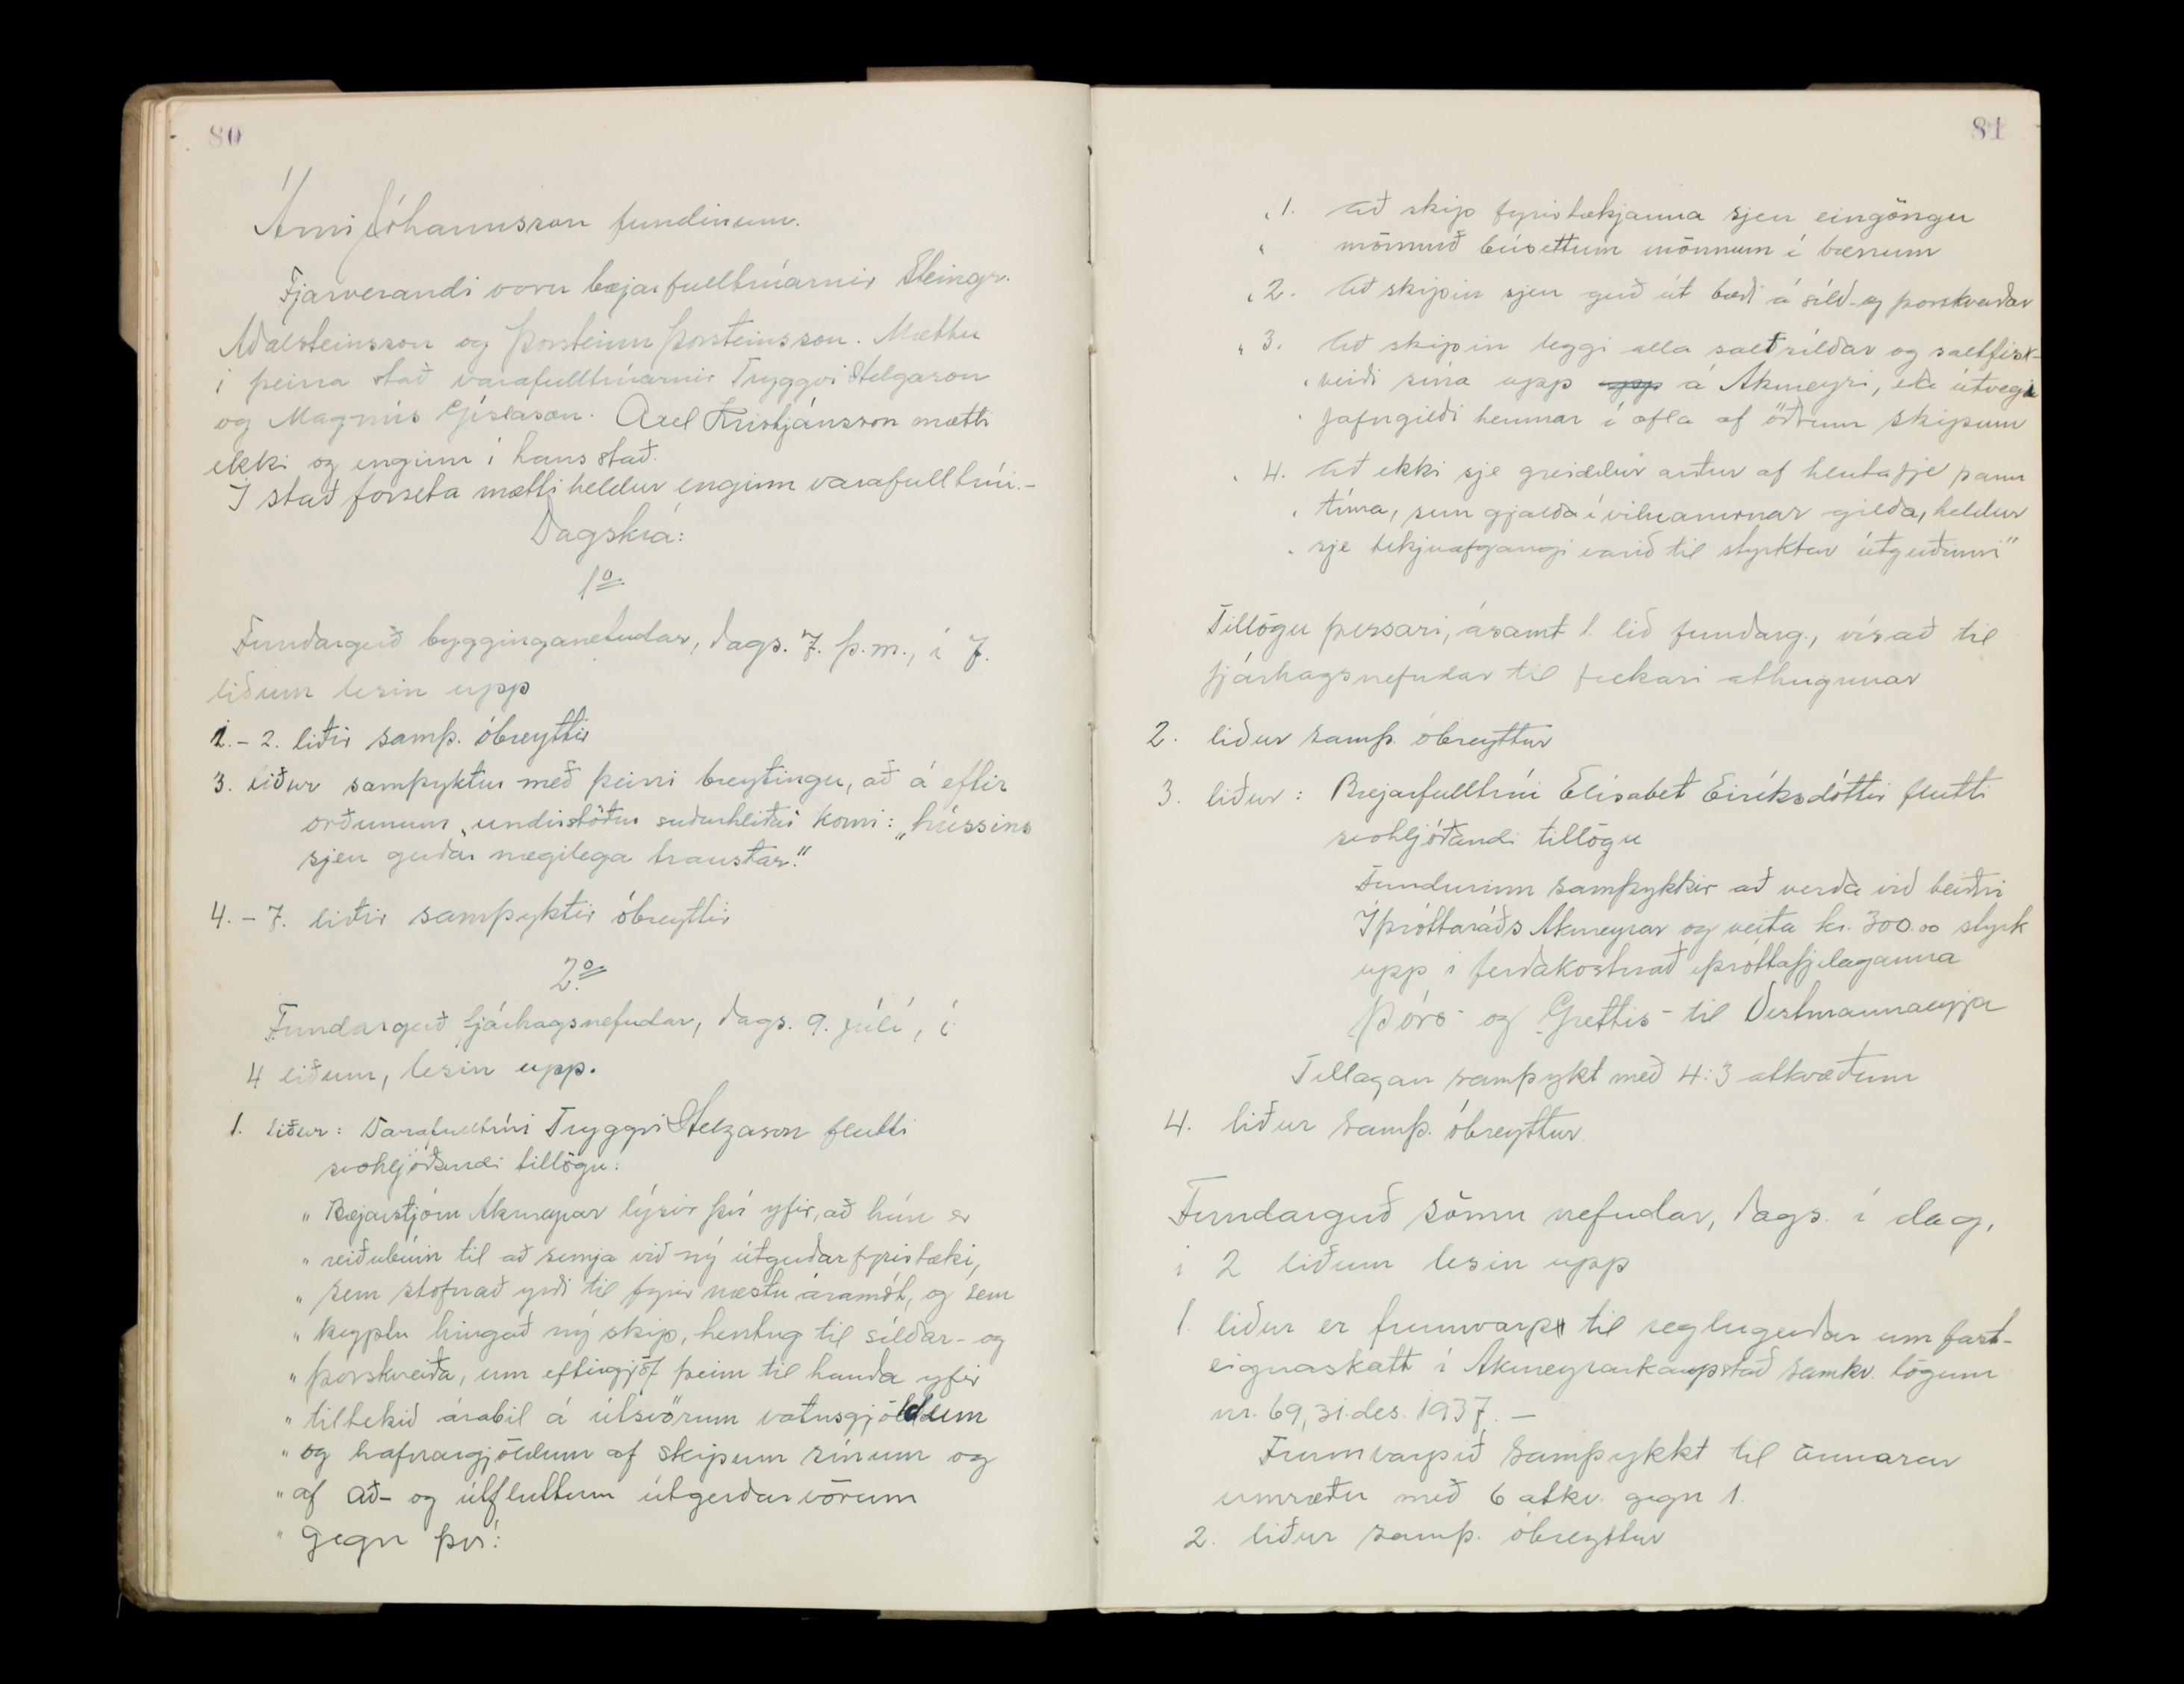 80
Árni Jóhannsson fundinum.
Fjarverandi voru bæjarfulltrúarnir Steingr.
Aðalsteinsson og Þorsteinn Þorsteinsson. Mættu
í þeirra stað varafulltrúarnir Tryggvi Helgason
og Magnús Gíslason. Axel Kristjánsson mætti
ekki og enginn í hans stað.
Í stað forseta mætti heldur enginn varafulltrúi.-
Dagskrá:
1º
Fundargerð bygginganefndar, dags. 7. þ.m., í 7.
liðum lesin upp
1.- 2. liðir samþ. óbreyttir
3. liður samþyktur með þeirri breytingu, að á eftir
orðunum „undirstöður suðurhliðar" komi: „hússins
sjeu gerðar nægilega traustar."
4. - 7. liðir samþyktir óbreyttir
2º
Fundargerð fjárhagsnefndar, dags. 9. júlí, í
4 liðum, lesin upp.
1. liður: Varafulltrúi Tryggvi Helgason flutti
svohljóðandi tillögu:
" Bæjarstjórn Akureyrar lýsir því yfir, að hún er
" reiðubúin til að semja við ný útgerðarfyrirtæki,
" sem stofnað yrði til fyrir næstu áramót, og sem
" keyptu hingað ný skip, hentug til síldar- og
" þorskveiða, um eftirgjöf þeim til handa yfir
" tiltekið árabil á útsvörum vatnsgjöldum
" og hafnargjöldum af skipum sínum og
" af að- og útfluttum útgerðarvörum
" gegn því:
81
„1. Að skip fyrirtækjanna sjeu eingöngu
" mönnuð búsettum mönnum í bænum
„2. Að skipin sjeu gerð út bæði á síld- og þorskveiðar
„3. Að skipin leggi alla saltsíldar og saltfisk-
" veiði sína upp upp á Akureyri, eða útvegi
" jafngildi hennar í afla af öðrum skipum
„4. Að ekki sje greiddur arður af hlutafje þann
" tíma, sem gjaldaívilnanirnar gilda, heldur
" sje tekjuafgangi varið til styrktar útgerðinni"
Tillögu þessari, ásamt 1. lið fundarg., vísað til
fjárhagsnefndar til frekari athugunar
2. liður samþ. óbreyttur
3. liður: Bæjarfulltrúi Elísabet Eiríksdóttir flutti
svohljóðandi tillögu
Fundurinn samþykkir að verða við beiðni
Íþróttaráðs Akureyrar og veita kr. 300.00 styrk
upp í ferðakostnað íþróttafjelaganna
Þórs og Grettis til Vestmannaeyja
Tillagan samþykt með 4:3 atkvæðum
4. liður samþ. óbreyttur.
Fundargerð sömu nefndar, dags. í dag,
í 2 liðum lesin upp
1. liður er frumvarp til reglugerðar um fast-
eignaskatt í Akureyrarkaupstað samkv. lögum
nr. 69, 31. des. 1937. -
Frumvarpið samþykkt til annarar
umræðu með 6 atkv. gegn 1.
2. liður samþ. óbreyttur